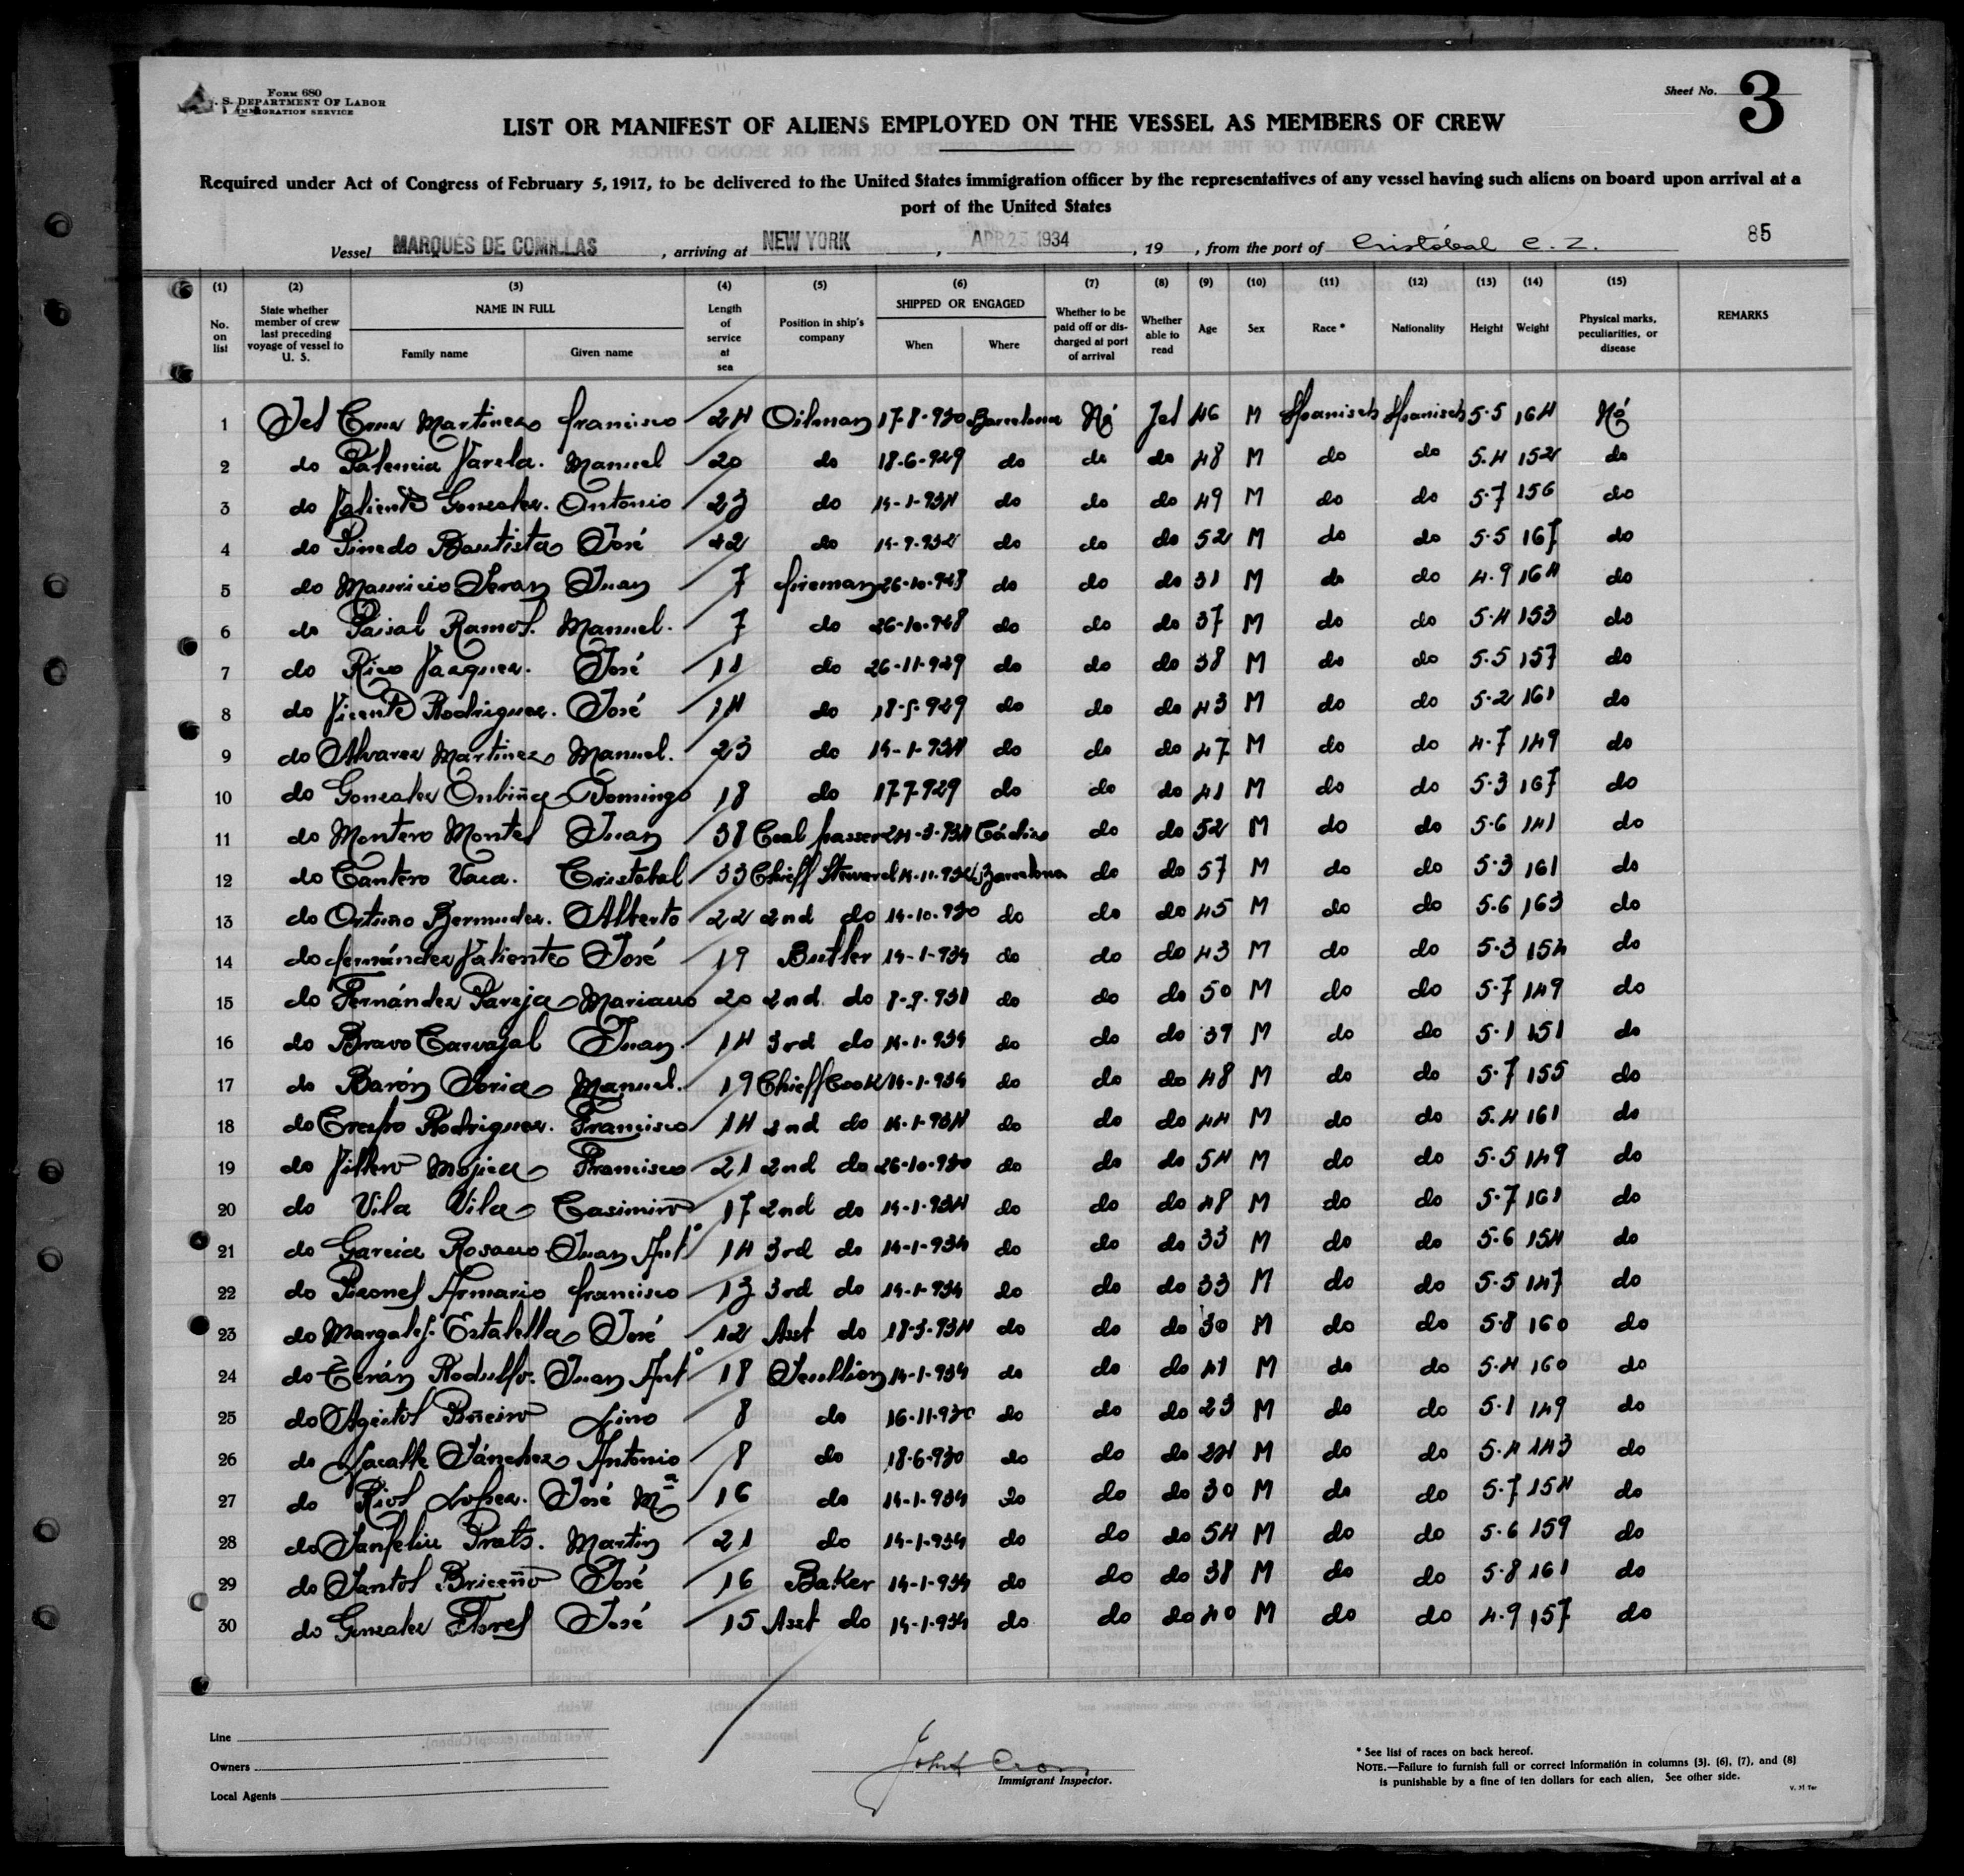 Form 680
U. S. Department Of Labor
Immigration Service
Sheet No. 3
LIST OR MANIFEST OF ALIENS EMPLOYED ON THE VESSEL AS MEMBERS OF CREW
Required under Act of Congress of February 5, 1917, to be delivered to the United States immigration officer by the representatives of any vessel having such aliens on board upon arrival at a
port of the United States
Vessel MARQUÉS DE COMILLAS, arriving at NEW YORK, APR 23 1934, 19 , from the port of Cristóbal C. Z. 85
(1) No. on list
(2) State whether member of crew last preceding voyage of vessel to U. S.
(3) NAME IN FULL Family name Given name
(4) Length of service at sea
(5) Position in ship's company
(6) SHIPPED OR ENGAGED When Where
(7) Whether to be paid off or discharged at port of arrival
(8) Whether able to read
(9) Age
(10) Sex
(11) Race *
(12) Nationality
(13) Height
(14) Weight
(15) Physical marks, peculiarities, or disease
REMARKS
1 Jes Martinez francisco 24 Oilman 17-8-930 Barcelona Nó Jes 46 M Spanisch Spanisch 5-5 164 Nó
2 do Palencia Varela. Manuel 20 do 18-6-929 do do do 48 M do do 5.4 152 do
3 do Valiente Gonzalez. Antonio 23 do 14-1-934 do do do 49 M do do 5-7 156 do
4 do Pinedo Bautista José 22 do 14-9-932 do do do 52 M do do 5-5 167 do
5 do Mauricio Teran Juan 7 fireman 26-10-928 do do do 31 M do do 4.9 164 do
6 do Paisal Ramos. Manuel. 7 do 26-10-928 do do do 37 M do do 5-4 153 do
7 do Rico Vazquez. José 11 do 26-11-929 do do do 38 M do do 5.5 157 do
8 do Vicente Rodriguez. José 14 do 18-5-929 do do do 43 M do do 5-2 161 do
9 do Alvarez Martinez Manuel. 23 do 14-1-934 do do do 47 M do do 4-7 149 do
10 do Gonzalez Oubiña Domingo 18 do 17-7-929 do do do 41 M do do 5-3 167 do
11 do Montero Montes Juan 38 Coal passer 24-3-934 Cádiz do do 52 M do do 5-6 141 do
12 do Cantero Vaca. Cristobal 33 Chieff Steward 14-11-932 Barcelona do do 57 M do do 5-3 161 do
13 do Ortuno Bermudez. Alberto 22 2nd do 14-10-930 do do do 45 M do do 5.6 163 do
14 do fernández Valiente José 19 Butler 14-1-934 do do do 43 M do do 5-3 154 do
15 do Fernández Pareja Mariano 20 2nd do 8-9-931 do do do 50 M do do 5-7 149 do
16 do Bravo Carvajal Juan 14 3rd do 14-1-934 do do do 39 M do do 5-1 151 do
17 do Barón Soria Manuel. 19 Chieff Cook 14-1-934 do do do 48 M do do 5-7 155 do
18 do Crespo Rodriguez. Francisco 14 2nd do 14-1-934 do do do 44 M do do 5.4 161 do
19 do Mojica Francisco 21 2nd do 26-10-930 do do do 54 M do do 5-5 149 do
20 do Vila Vila Casimiro 17 2nd do 14-1-934 do do do 48 M do do 5-7 161 do
21 do Garcia Rosano Juan Antº 14 3rd do 14-1-934 do do do 33 M do do 5-6 154 do
22 do Armario francisco 13 3rd do 14-1-934 do do do 33 M do do 5-5 147 do
23 do Margalef. Estalella José 12 Asst do 18-3-934 do do do 30 M do do 5-8 160 do
24 do Terán Rodulfo. Juan Antº 18 Scullion 14-1-934 do do do 41 M do do 5-4 160 do
25 do Ageitos Piñeiro Lino 8 do 16-11-930 do do do 23 M do do 5-1 149 do
26 do Sánchez Antonio 8 do 18-6-930 do do do 24 M do do 5-4 143 do
27 do Rios Lopez. José Mª 16 do 14-1-934 do do do 30 M do do 5-7 154 do
28 do Sanfeliu Prats. Martin 21 do 14-1-934 do do do 54 M do do 5-6 159 do
29 do Santos Briceño José 16 Baker 14-1-934 do do do 38 M do do 5-8 161 do
30 do Gonzalez Flores José 15 Asst do 14-1-934 do do do 40 M do do 4-9 157 do
Line
Owners
Local Agents
John
Immigrant Inspector.
* See list of races on back hereof.
NOTE.—Failure to furnish full or correct information in columns (3), (6), (7), and (8)
is punishable by a fine of ten dollars for each alien. See other side.